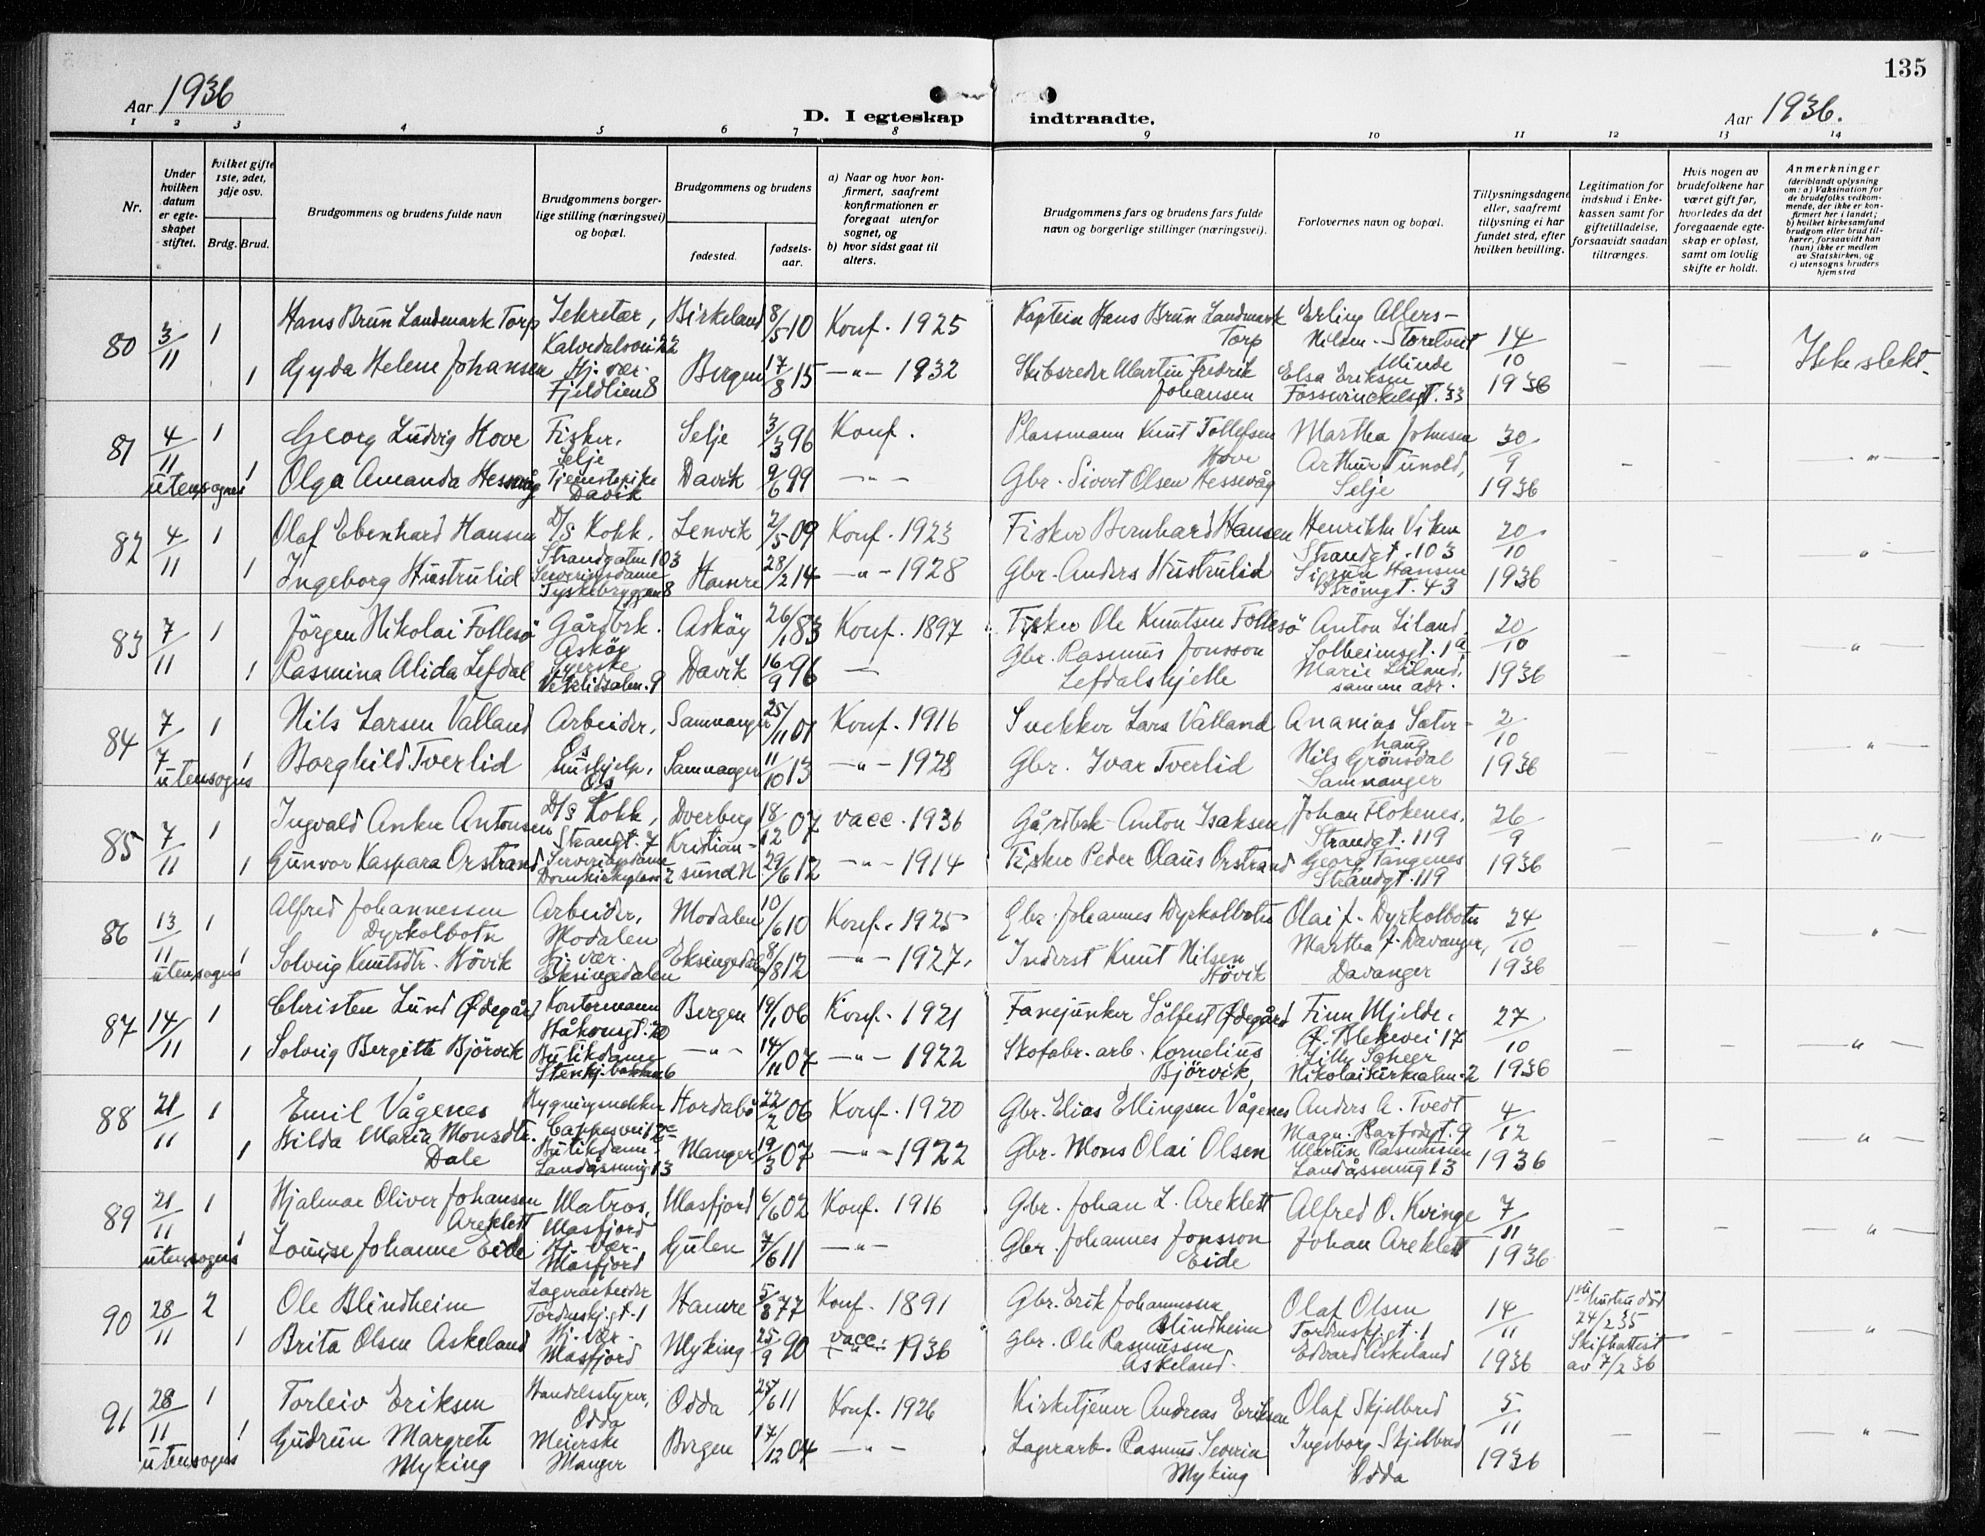 135
Aar 1936
D. I egteskap indtraadte.
Aar 1936.
1 2 3 4 5 6 7 8 9 10 11 12 13 14
Nr.
Under hvilken datum er egteskapet stiftet.
Hvilket gifte 1ste, 2det, 3dje osv.
Brdg. Brud.
Brudgommens og brudens fulde navn
Brudgommens borgerlige stilling (næringsvei) og bopæl.
Brudgommens og brudens
fødested.
fødselsaar.
a) Naar og hvor konfirmert, saafremt konfirmationen er foregaat utenfor sognet, og
b) hvor sidst gaat til alters.
Brudgommens fars og brudens fars fulde navn og borgerlige stillinger (næringsvei).
Forlovernes navn og bopæl.
Tillysningsdagene eller, saafremt tillysning ei har fundet sted, efter hvilken bevilling.
Legitimation for indskud i Enkekassen samt for giftetilladelse, forsaavidt saadan tiltrænges.
Hvis nogen av brudefolkene har været gift før, hvorledes da det foregaaende egteskap er opløst, samt om lovlig skifte er holdt.
Anmerkninger
(deriblandt oplysning om: a) Vaksination for de brudefolks vedkommende, der ikke er konfirmert her i landet; b) hvilket kirkesamfund brudgom eller brud tilhører, forsaavidt han (hun) ikke er medlem av Statskirken, og c) utensogns bruders hjemsted
80 3/11 1 Hans Brun Landmark Torp Sekretær, Kalvedalsvei 22 Birkeland 8/5 10 Konf. 1925 Kaptein Hans Brun Landmark Torp Erling Allers- Hilden - Storetveit 14/10 1936 – – Ikke slekt.
1 Gyda Helene Johansen Hj. vær. Fjeldlien 8 Bergen 17/8 15 –"– 1932 Skibsreder Martin Fredrik Johansen Minde Elsa Eriksen Fosswinckelsgt. 33
81 4/11 utensogns 1 Georg Ludvig Hove Fisker, Selje Selje 3/3 96 Konf. Plassmann Knut Tollefsen Hove Martha Johnsen 30/9 1936 – – "
1 Olga Amanda Hessevåg Tjenestepike Davik Davik 9/6 99 –"– Gbr. Sivert Olsen Hessevåg Arthur Tunold, Selje
82 4/11 1 Olaf Ebenhard Hansen D/S Kokk, Strandgaten 103 Lenvik 2/5 09 Konf. 1923 Fisker Bernhard Hansen Henrikke Viken Strandgt. 103 20/10 1936 – – "
1 Ingeborg Hustrulid Serveringsdame Tyskebryggen 8 Hamre 28/2 14 –"– 1928 Gbr. Anders Hustrulid Sigrun Hansen Strømgt. 43
83 7/11 1 Jörgen Nikolai Follesö Gårdbr. Asköy Asköy 26/1 83 Konf. 1897 Fisker Ole Knutsen Follesö Anton Liland, Solheimsgt. 1a 20/10 1936 – – "
1 Rasmina Alida Lefdal Syerske Davik 16/9 96 — Gbr. Rasmus Jonsson Lefdalskjelle Marie Liland, samme adr.
84 7/7 utensogns 1 Nils Larsen Valland Arbeider, Os Samnanger 25/11 01 Konf. 1916 Snekker Lars Våland Ananias Sæterhaug 2/10 1936 – – "
1 Borghild Tverlid Hushjelp, Os Samnanger 11/10 13 –"– 1928 Gbr. Ivar Tverlid Nils Grönsdal Samnanger
85 7/11 1 Ingvald Anker Antonsen D/S Kokk, Strandgt. 7 Dverberg 18/12 07 vacc. 1936 Gårdbr. Anton Isaksen Johan Flokenes, Strandgt. 119 26/9 1936 "
1 Gunvor Kaspara Orstrand Serveringsdame Domkirkeplass 2 Kristiansund N. 29/6 12 –"– 1914 Fisker Peder Olaus Orstrand Georg Tangenes Strandgt. 119
86 13/11 utensogns 1 Alfred Johannessen Dyrkolbotn Arbeider, Modalen Modalen 10/6 10 Konf. 1925 Gbr. Johannes Dyrkolbotn Olai J. Dyrkolbotn 24/10 1936 – – "
1 Solveig Knutsdtr. Hövik Hj. vær. Eksingedalen Eksingedal 8/8 12 –"– 1927. Inderst Knut Nilsen Hövik Martha J. Davanger, Davanger
87 14/11 1 Christen Lund Ødegård Kontormann Håkonsgt. 20 Bergen 19/1 06 Konf. 1921 Fanejunker Sölfest Ødegård Finn Mjelde, J. Blekevei 17 27/10 1936 – – "
1 Solveig Bergitte Björvik Butikdame Stenkj.bakken 6 –"– 14/11 07 –"– 1922 Skofabr. arb. Kornelius Björvik Lilly Scheer Nikolaikirkealm. 2
88 21/11 1 Emil Vågenes Bygningsnekker Hordabö 22/2 06 Konf. 1920 Gbr. Elias Ellingsen Vågenes Anders A. Tvedt Magn. Barfodgt. 9 4/12 1936 – – "
1 Bilda Maria Monsdtr. Dale Butikdame Landåssving 13 Manger 19/3 07 –"– 1922 Gbr. Mons Olai Olsen Martin Rasmussen Landåssving 13
89 21/11 utensogns 1 Hjalmar Oliver Johansen Areklett Matros, Masfjord Masfjord 6/6 02 Konf. 1916 Gbr. Johan L. Areklett Alfred O. Kvinge 7/11 1936 – – "
1 Louise Johanne Eide Hj. vær. Masfjord Gulen 7/6 11 –"– Gbr. Johannes Jonsson Eide Johan Areklett
90 28/11 2 Ole Blindheim Lagerarbeider Tordenskj.gt. 1 Hamre 5/8 77 Konf. 1891 Gbr. Erik Johannessen Blindheim Olaf Olsen Tordenskj.gt. 1 14/11 1936 1ste hustru död 24/2 35 Skifteattest av 7/2 36 – "
1 Brita Olsen Askeland Hj. vær. Masfjord Myking 25/9 90 vacc. 1936 Gbr. Ole Rasmussen Askeland. Edvard Eskeland
91 28/11 utensogns 1 Torleiv Eriksen Handelsstyrer, Odda Odda 25/6 11 Konf. 1926 Kirketjener Andreas Eriksen Olaf Skjelbred 5/11 1936 – – "
1 Gudrun Margrete Myking Meierske Manger Bergen 17/12 04 –"– Lagerarb. Rasmus Severin Myking Ingeborg Skjelbred Odda